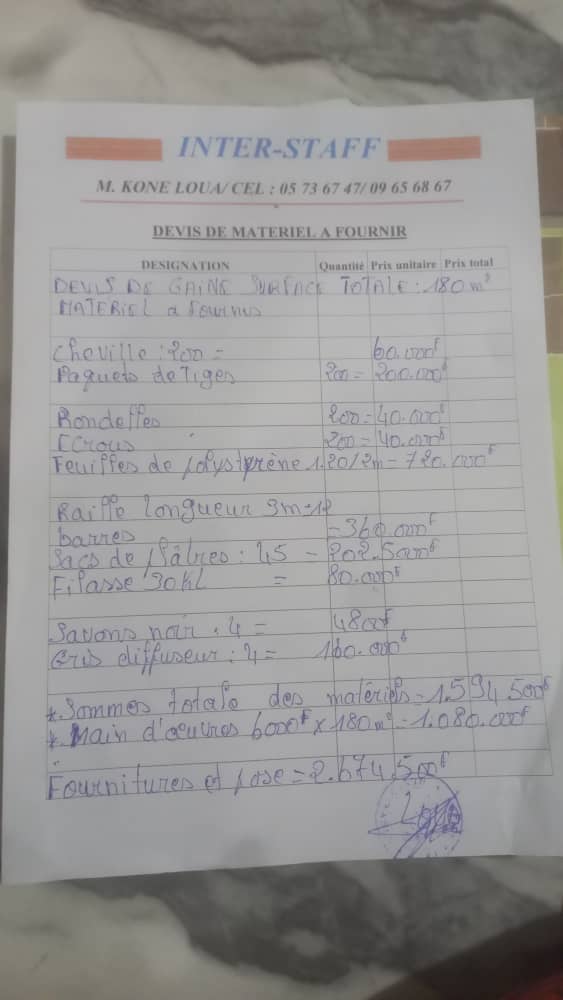 INTER-STAFF
M. KONE LOUA/ CEL : 05 73 67 47/ 09 65 68 67
DEVIS DE MATERIEL A FOURNIR
DESIGNATION Quantité Prix unitaire Prix total
DEVIS DE GAINE SURFACE TOTALE : 180m²
MATERIEL a fournis
Cheville : 200 = 60.000f
Paquets de Tiges 200 = 200.000f
Rondelles 200 = 40.000f
Ecrous 200 = 40.000f
Feuilles de polystprène 1.20/2m = 720.000f
Raille longueur 3m = 12
barres = 360.000f
Sacs de plâtres : 45 = 202.500f
Filasse 30KL = 80.000f
Savons noir : 4 = 4800f
Gris diffuseur : 4 = 160.000f
*.Sommes totale des matériels = 1.594 500f
*.Main d'œuvres 6000f x 180m² = 1.080.000f
Fournitures et pose = 2.674.500f